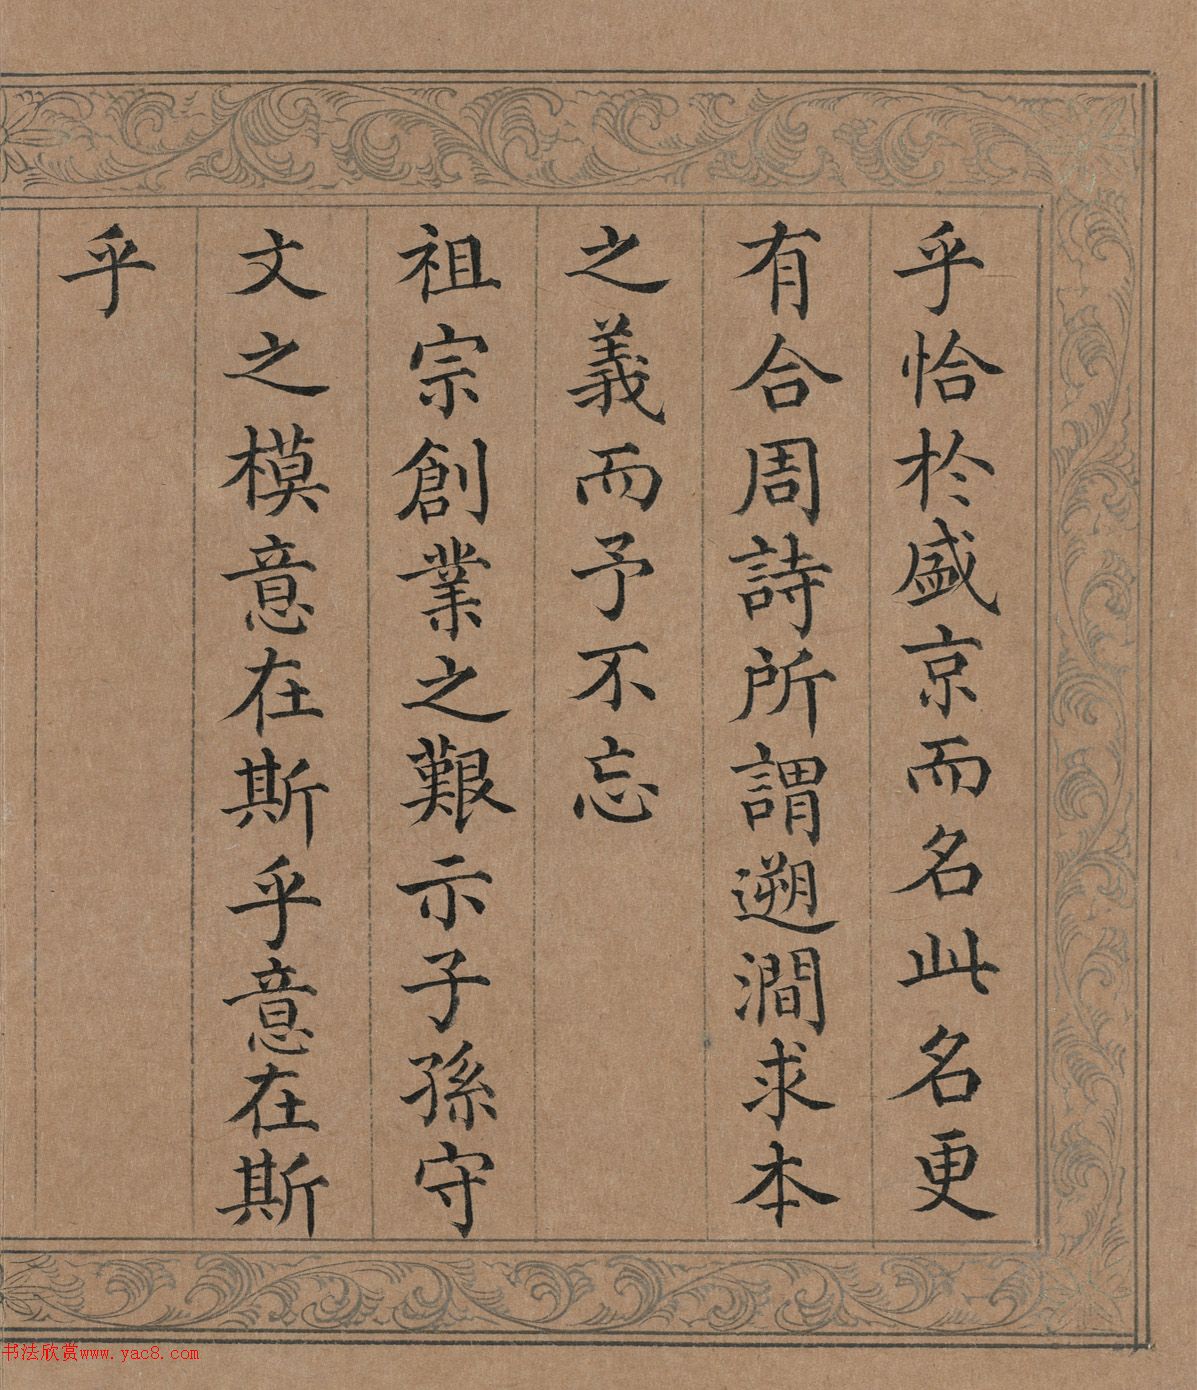 乎恰於盛京而名此名更
有合周詩所謂遡澗求本
之義而予不忘
祖宗創業之艱示子孫守
文之模意在斯乎意在斯
乎
书法欣赏www.yac8.com